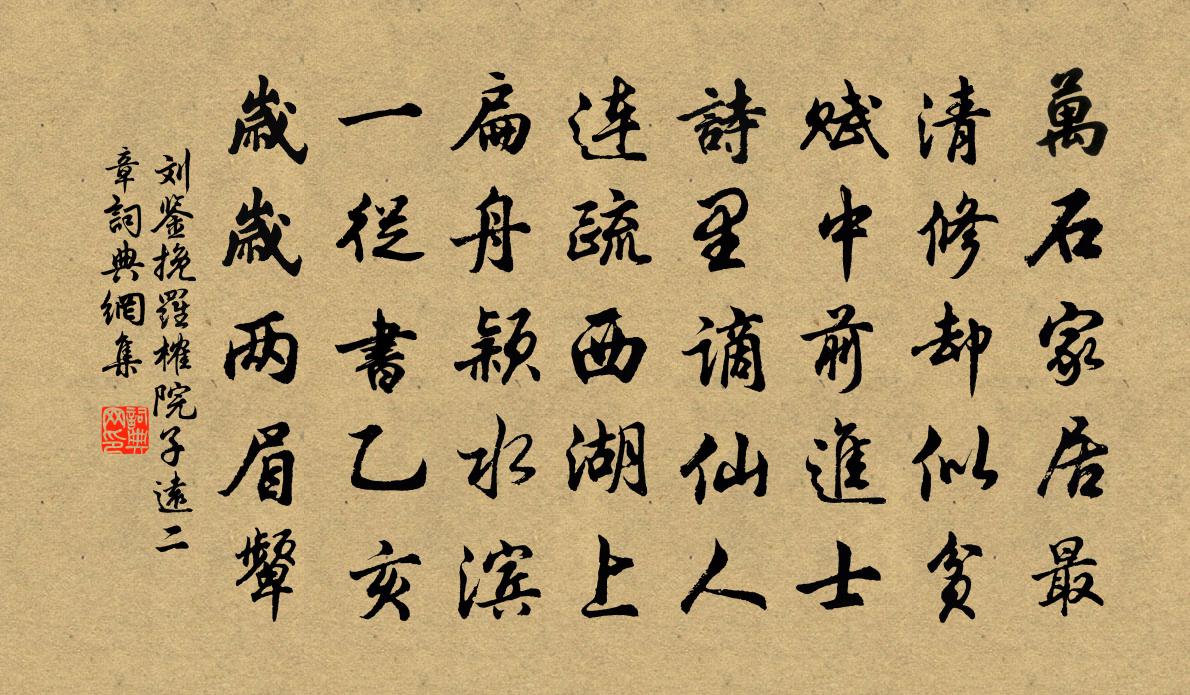 萬石家居最
清修却似貧
賦中前進士
詩里謫仙人
連疏西湖上
扁舟潁水濱
一從書乙亥
歲歲兩眉顰
刘鉴挽羅榷院子遠二
章詞典網集
詞典网印